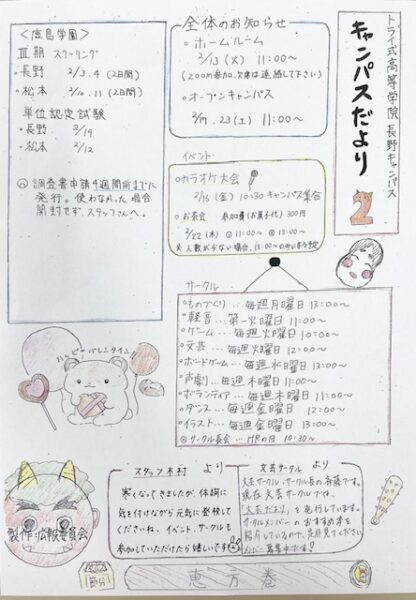 トライ式高等学院 長野キャンパス
キャンパスだより 2
全体のお知らせ
・ホームルーム
2/13(火) 11:00〜
(zoom参加、欠席は連絡して下さい)
・オープンキャンパス
23(土) 11:00〜
<鹿島学園>
Ⅲ期 スクーリング
・長野 2/3.4 (2日間)
・松本 2/10.11 (2日間)
単位認定試験
・長野 2/19
・松本 2/12
調査書申請4週間前までに
発行。使わなかった場合
開封せず、スタッフさんへ。
イベント
カラオケ大会
2/16(金) 10:30 キャンパス集合
お茶会 参加費(お菓子代) 300円
2/22(木) ① 11:00〜 ② 13:00〜
※人数が少ない場合、13:00〜のみになる予定
サークル
ものづくり…毎週月曜日 13:00〜
軽音…第一火曜日 11:00〜
ゲーム…毎週火曜日 10:00〜
文芸…毎週火曜日 12:00〜
ボードゲーム…毎週水曜日 13:00〜
声劇…毎週木曜日 11:00〜
ボランティア…毎週木曜日 11:00〜
ダンス…毎週金曜日 12:00〜
イラスト…毎週金曜日 13:00〜
サークル長会…HRの日 10:30〜
ハッピーバレンタイン
スタッフ木村 より
寒くなってきましたが、体調に
気を付けながら元気に登校して
くださいね。イベント、サークルも
参加していただけたら嬉しいです
文芸サークル より
文芸サークル、サークル長の斉藤です。
現在文芸サークルでは、
「文芸だより」を発行しています。
サークルメンバーのおすすめ本を
紹介しているので、是非見てください
メンバー募集中です!
製作:広報委員会
節分
恵方巻